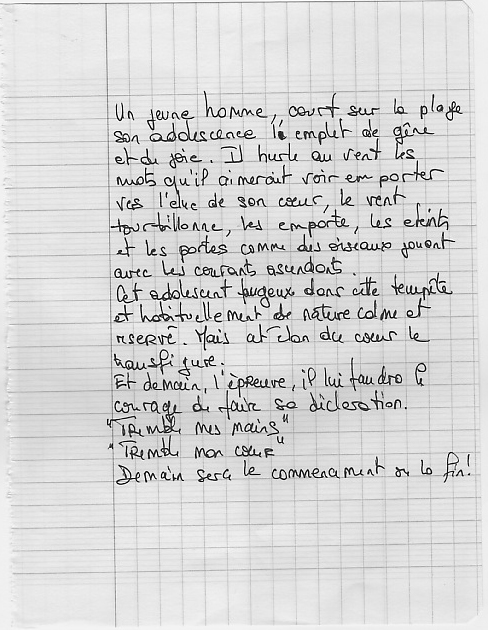 Un jeune homme, court sur la plage
son adolescence l'emplit de gêne
et du joie. Il hurle au vent les
mots qu'il aimerait voir emporter
vers l'élue de son cœur, le vent
tourbillonne, les emporte, les éteint
et les portes comme des oiseaux jouent
avec les courants ascendants.
Cet adolescent fougeux dans cette tempête
et habituellement de nature calme et
réservé. Mais cet élan du cœur le
transfigure.
Et demain, l'épreuve, il lui faudra le
courage de faire sa déclaration.
"Tremble mes mains"
"Tremble mon cœur"
Demain sera le commencament ou la fin!